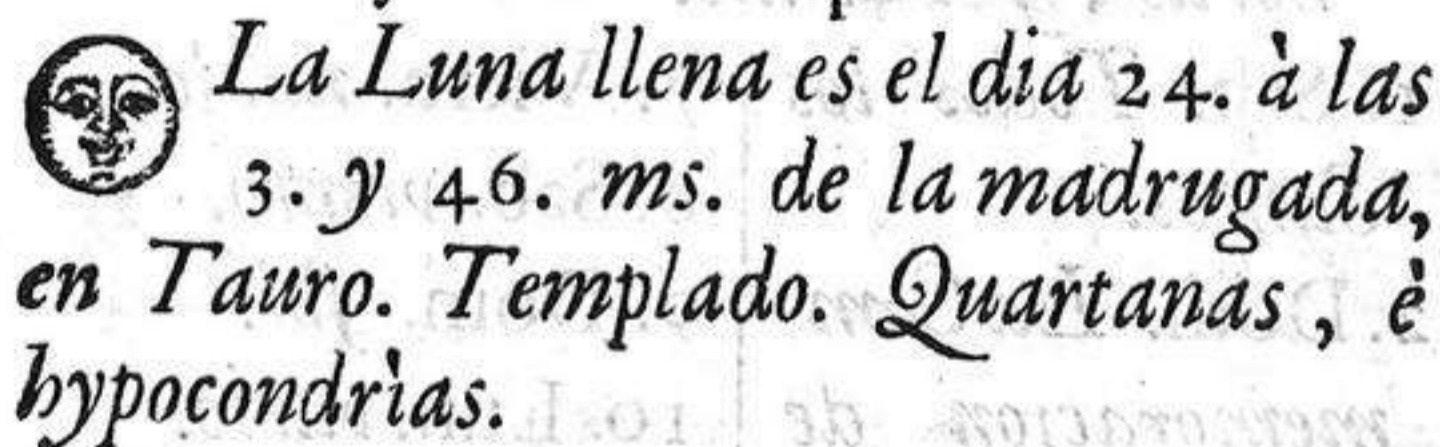 La Luna llena es el dia 24. à las
3. y 46. ms. de la madrugada,
en Tauro. Templado. Quartanas, è
hypocondrìas.